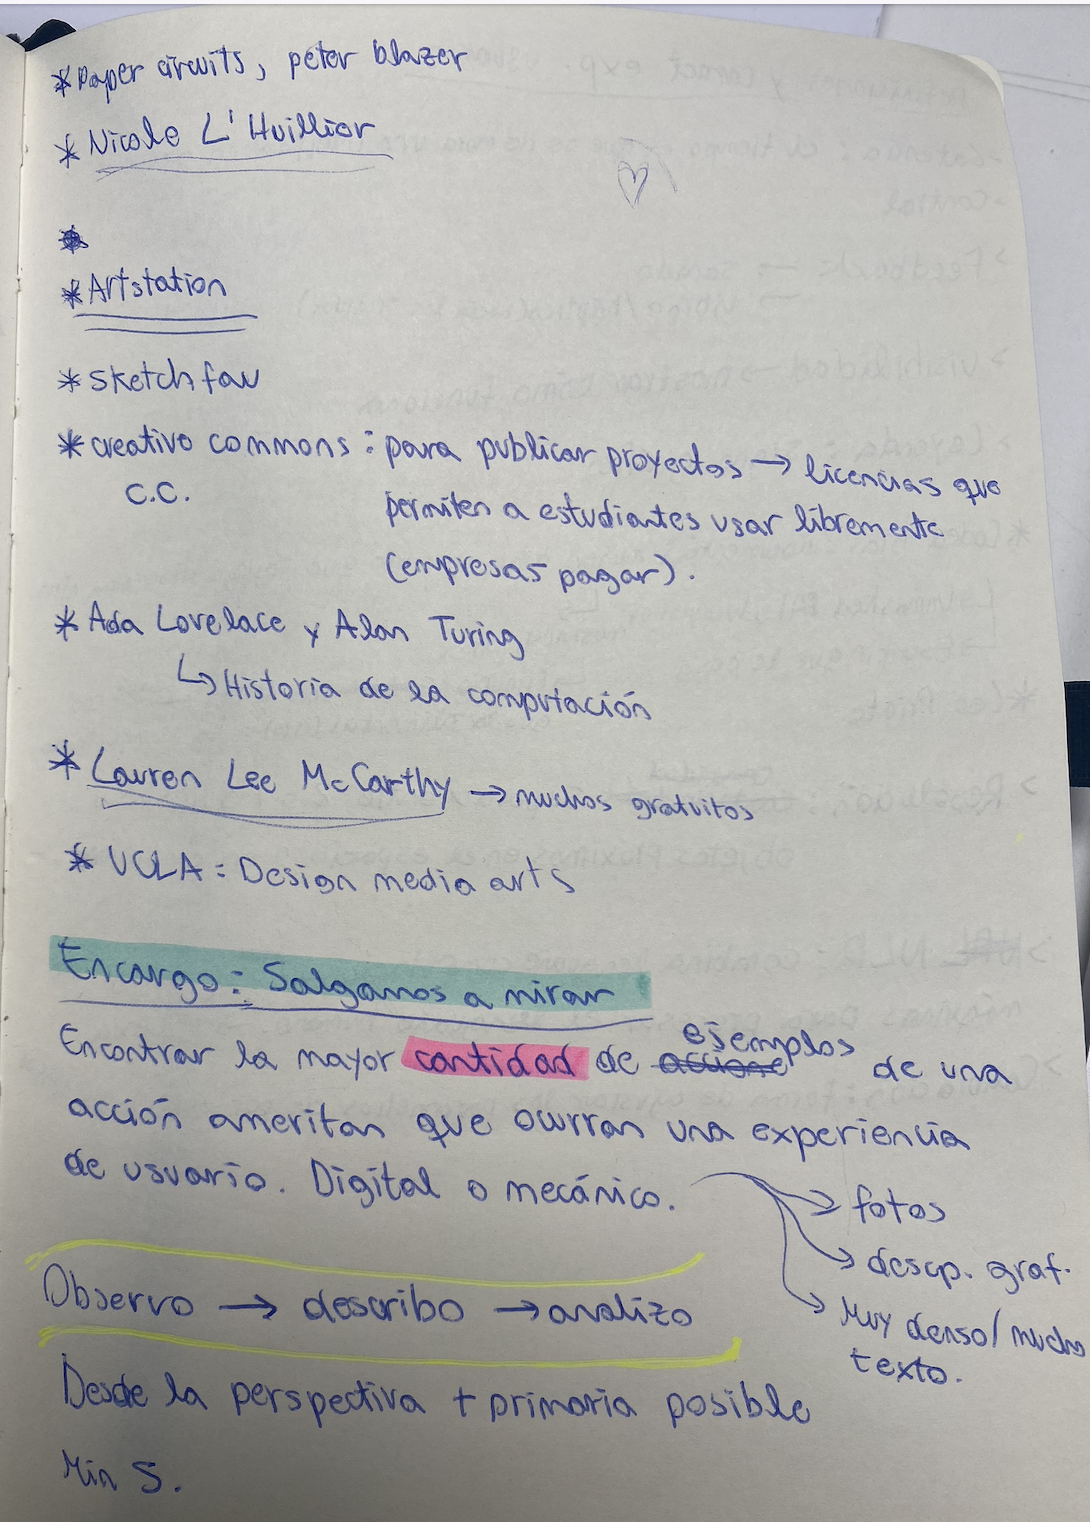 * paper circuits, peter blazer
* Nicole L'Huillier
*
* Artstation
* sketch fav
* creative commons : para publicar proyectos → licencias que
C.C. permiten a estudiantes usar libremente
(empresas pagar).
* Ada Lovelace y Alan Turing
↳ Historia de la computación
* Lauren Lee McCarthy → muchos gratuitos
* UCLA : Design media arts
Encargo : Salgamos a mirar
Encontrar la mayor cantidad de ejemplos de una
acción ameritan que ocurran una experiencia
de usuario. Digital o mecánico.
→ fotos
→ descp. graf.
→ Muy denso/mucho
texto.
Observo → describo → analizo
Desde la perspectiva + primaria posible
Min 5.